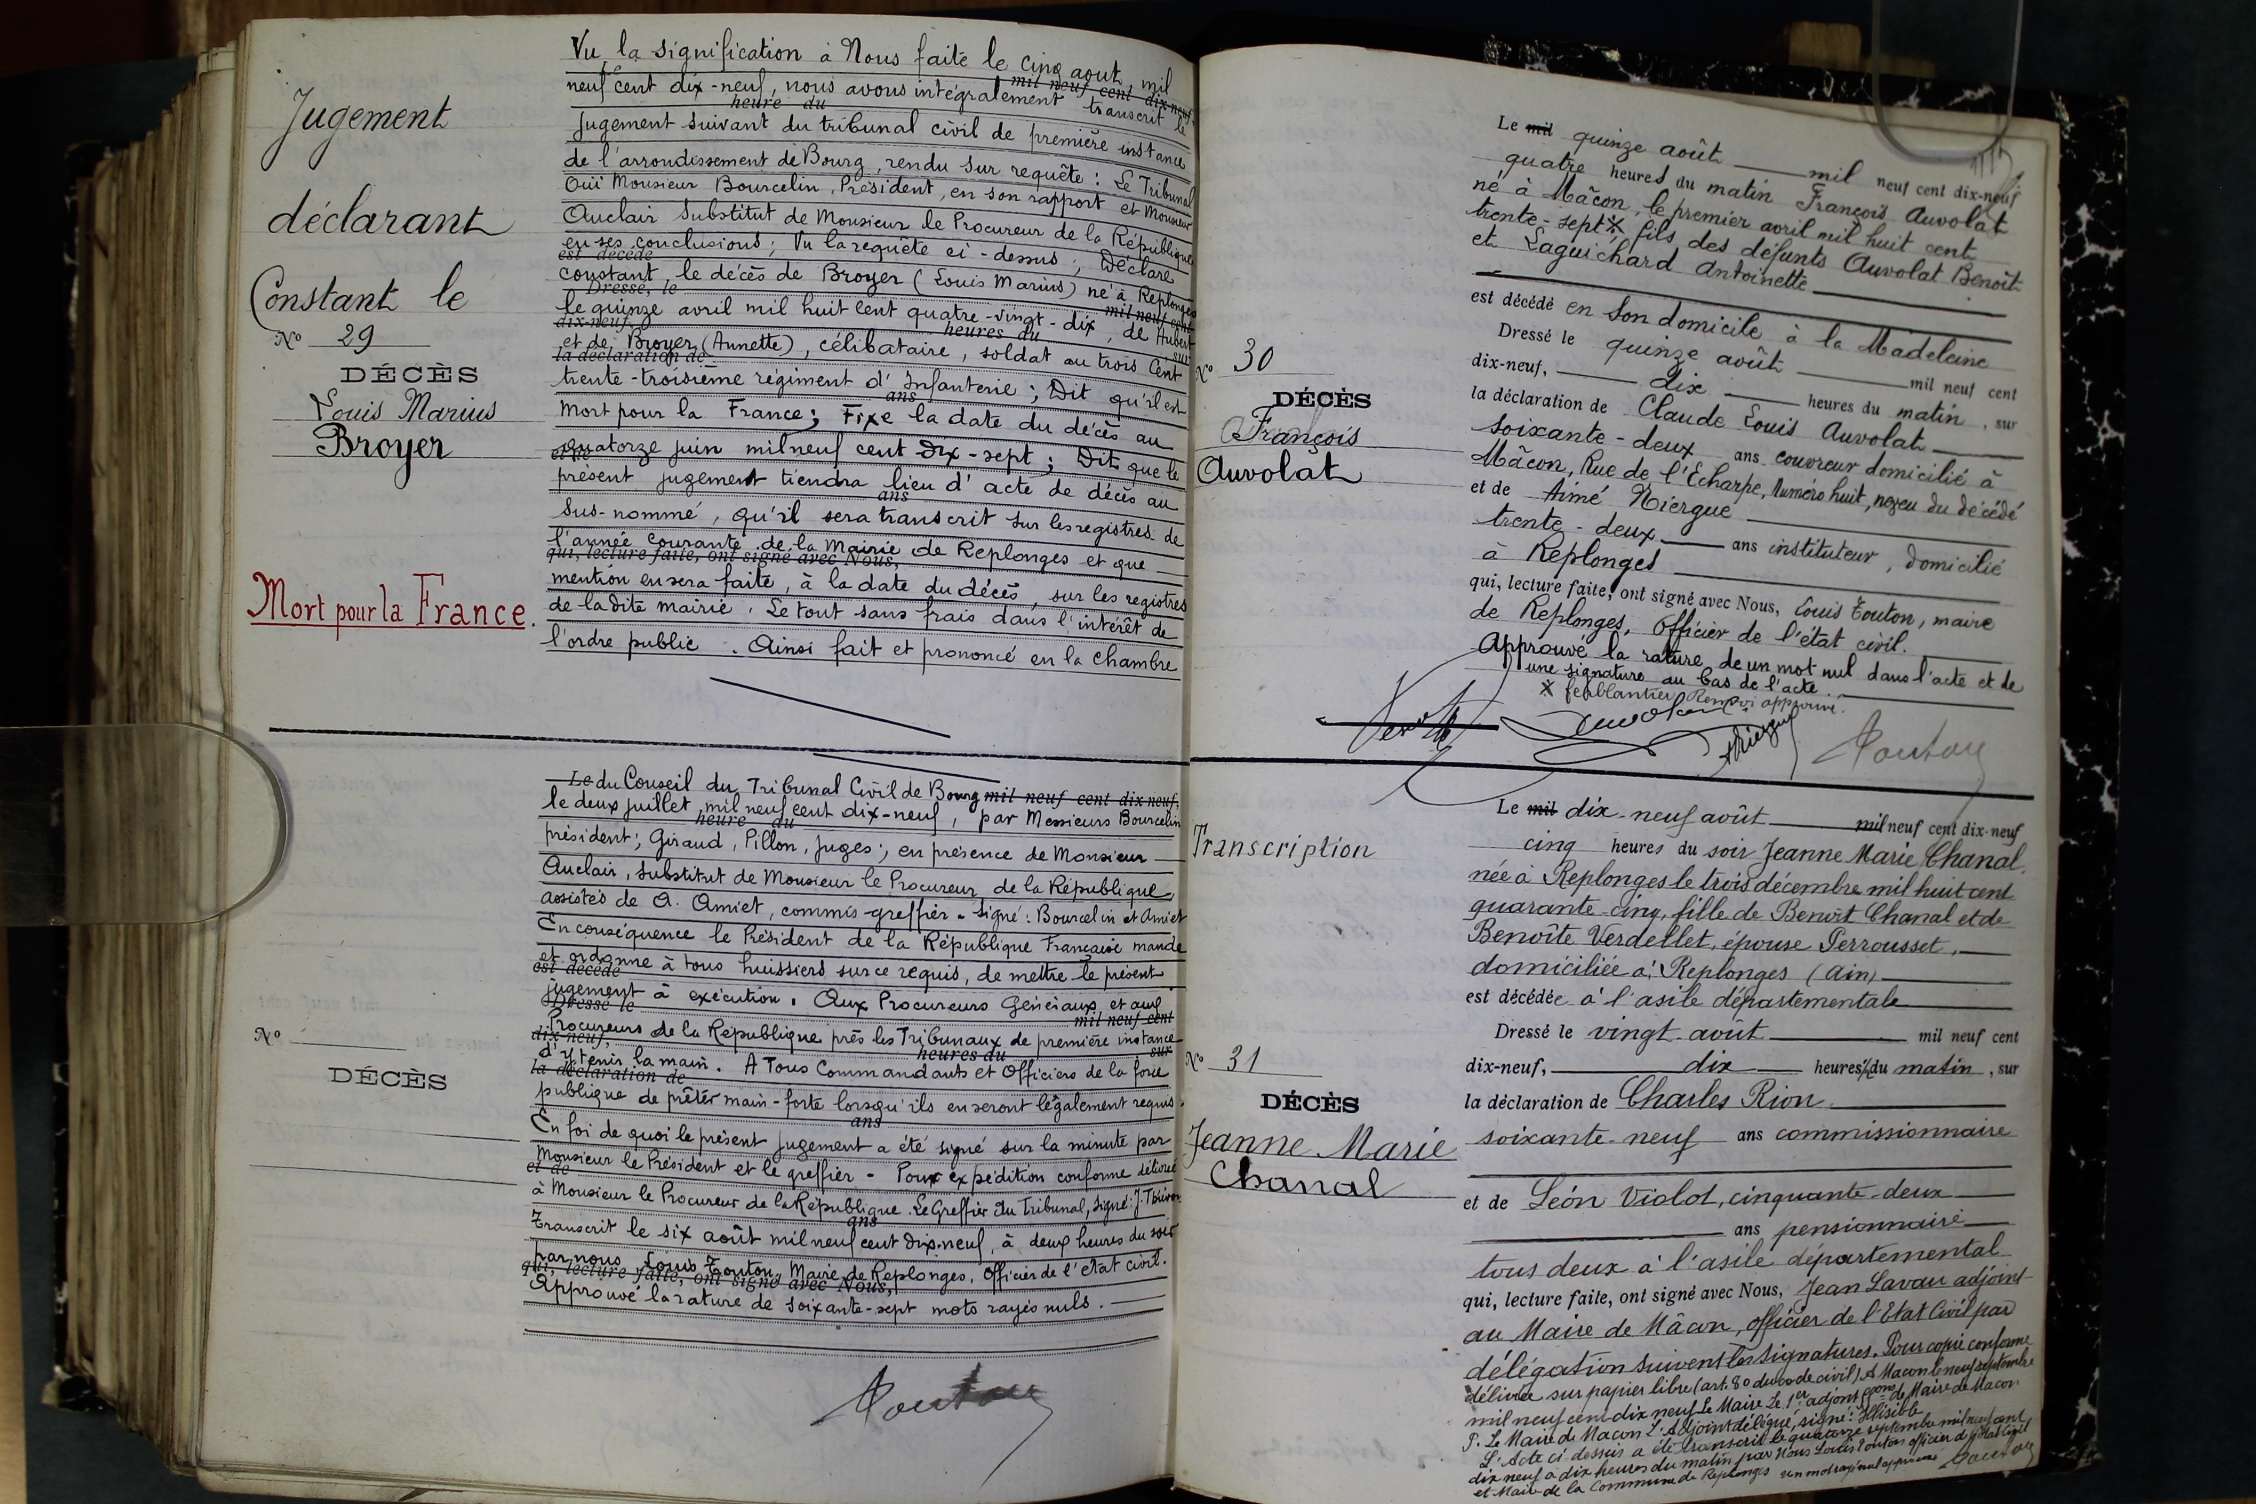 Jugement
déclarant
Constant le
N° 29
DÉCÈS
Louis Marius
Broyer
Mort pour la France.
Vu la signification à Nous faite le cinq aout mil
mil neuf cent dix-neuf,
neuf cent dix-neuf, nous avons intégralement transcrit le
heure du
jugement suivant du tribunal civil de première instance
de l'arrondissement de Bourg, rendu sur requête : Le Tribunal
Ouï Monsieur Bourcelin, Président, en son rapport et Monsieur
Auclair Substitut de Monsieur le Procureur de la République
en ses conclusions ; Vu la requête ci-dessus ; Déclare
est décédé
constant le décès de Broyer (Louis Marius) né à Replonges
Dressé, le
mil neuf cent
le quinze avril mil huit cent quatre-vingt-dix, de Hubert
dix-neuf,
heures du
sur
et de Broyer (Annette), célibataire, soldat au trois Cent
la déclaration de
trente-troisième régiment d'Infanterie ; Dit qu'il est
ans
mort pour la France ; Fixe la date du décès au
quatorze juin mil neuf cent dix-sept ; Dit que le
et de
présent jugement tiendra lieu d'acte de décès au
ans
sus-nommé, qu'il sera transcrit sur les registres de
l'année courante de la Mairie de Replonges et que
qui, lecture faite, ont signé avec Nous,
mention en sera faite, à la date du décès, sur les registres
de la dite mairie. Le tout sans frais dans l'intérêt de
l'ordre public. Ainsi fait et prononcé en la chambre
N°
DÉCÈS
Le du Conseil du Tribunal Civil de Bourg mil neuf cent dix neuf,
le deux juillet mil neuf cent dix-neuf, par Messieurs Bourcelin
heure du
président ; Giraud, Pillon, juges ; en présence de Monsieur
Auclair, substitut de Monsieur le Procureur de la République
assistés de A. Amiet, commis-greffier - signé : Bourcelin et Amiet
En conséquence le Président de la République Française mande
et ordonne à tous huissiers sur ce requis, de mettre le présent
est décédé
jugement à exécution. Aux Procureurs Généraux et aux
Dressé le
mil neuf cent
Procureurs de la République près les Tribunaux de première instance
dix-neuf,
heures du
sur
d'y tenir la main. A Tous Commandants et Officiers de la force
la déclaration de
publique de prêter main-forte lorsqu'ils en seront légalement requis.
ans
En foi de quoi le présent jugement a été signé sur la minute par
Monsieur le Président et le greffier - Pour expédition conforme délivrée
et de
à Monsieur le Procureur de la République. Le Greffier du Tribunal, signé :
ans
Transcrit le six août mil neuf cent dix-neuf, à deux heures du soir
par nous Louis Touton, Maire de Replonges, Officier de l'état civil.
qui, lecture faite, ont signé avec Nous,
Approuvé la rature de soixante-sept mots rayés nuls.
Touton
N° 30
DÉCÈS
François
Auvolat
Le mil quinze août mil neuf cent dix-neuf
quatre heures du matin François Auvolat
né à Mâcon, le premier avril mil huit cent
trente-sept X fils des défunts Auvolat Benoît
et Laguichard Antoinette
est décédé en son domicile à la Madeleine
Dressé le quinze août mil neuf cent
dix-neuf, dix heures du matin, sur
la déclaration de Claude Louis Auvolat
soixante-deux ans couvreur domicilié à
Mâcon, Rue de l'Echarpe, Numéro huit, neveu du décédé
et de Aimé Niergue
trente-deux ans instituteur, domicilié
à Replonges
qui, lecture faite, ont signé avec Nous, Louis Touton, maire
de Replonges, Officier de l'état civil.
Approuvé la rature de un mot nul dans l'acte et de
une signature au bas de l'acte.
X ferblantier Renvoi approuvé.
Auvolat
Niergue
Touton
Transcription
N° 31
DÉCÈS
Jeanne Marie
Chanal
Le mil dix-neuf août mil neuf cent dix-neuf
cinq heures du soir Jeanne Marie Chanal
née à Replonges le trois décembre mil huit cent
quarante-cinq, fille de Benoît Chanal et de
Benoîte Verdellet, épouse Perrousset,
domiciliée à Replonges (Ain)
est décédée à l'asile départementale
Dressé le vingt août mil neuf cent
dix-neuf, dix heures ½ du matin, sur
la déclaration de Charles Rion
soixante-neuf ans commissionnaire
et de Léon Violot, cinquante-deux
ans pensionnaire
tous deux à l'asile départemental
qui, lecture faite, ont signé avec Nous, Jean Lavau adjoint
au Maire de Mâcon, officier de l'Etat Civil par
délégation suivent les signatures. Pour copie conforme
délivrée sur papier libre (art. 80 du code civil) A Macon le neuf septembre
mil neuf cent dix neuf Le Maire Le 1er adjoint fions de Maire de Macon
P. Le Maire de Macon L'Adjoint délégué, signé : Illisible
L'Acte ci dessus a été transcrit le quatorze septembre mil neuf cent
dix neuf à dix heures du matin par Nous Louis Touton officier d'état civil
et Maire de la Commune de Replonges un mot rayé nul approuvé Touton